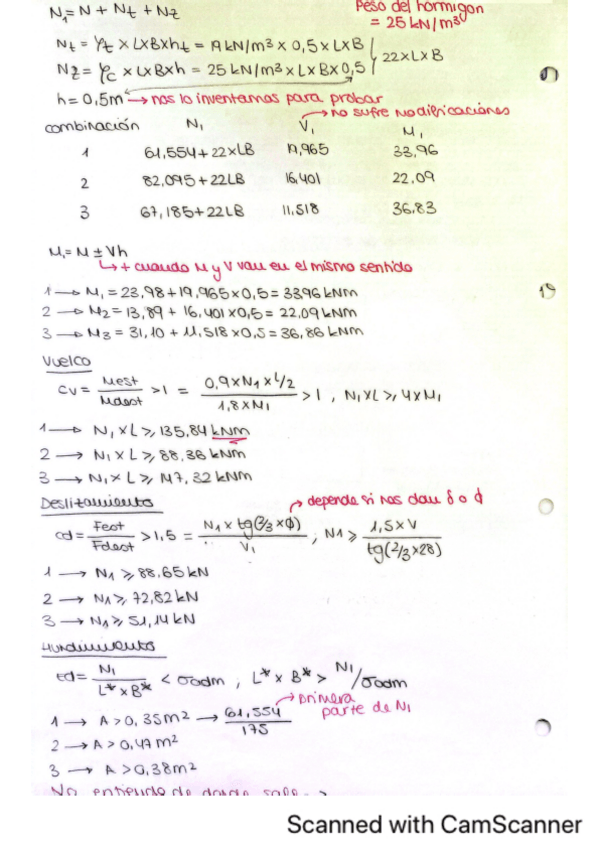 N₁ = N + Nt + Nz
Peso del hormigon
= 25 kN/m³
Nt = γt × L×B×ht = 19 kN/m³ × 0,5 × L×B
Nz = γc × L×B×h = 25 kN/m³ × L×B×0,5
22×L×B
h = 0,5m → nos lo inventamos para probar
→ no sufre modificaciones
combinación N₁ V₁ M₁
1 61,554+22×LB 19,965 33,96
2 82,095+22LB 16,401 22,09
3 67,185+22LB 11,518 36,83
M₁ = M ± Vh
↳ + cuando M y V van en el mismo sentido
1 → M₁ = 23,98+19,965×0,5 = 33,96 kNm
2 → M₂ = 13,89 + 16,401×0,5 = 22,09 kNm
3 → M₃ = 31,10 + 11,518×0,5 = 36,86 kNm
Vuelco
Cv = Mest/Mdest >1 = 0,9×N₁×L/2 / 1,8×M₁ >1 , N₁×L ≥ 4×M₁
1 → N₁×L ≥ 135,84 kNm
2 → N₁×L ≥ 88,36 kNm
3 → N₁×L ≥ 147,32 kNm
Deslizamiento
→ depende si nos dan δ o φ
cd = Fest/Fdest >1,5 = N₁ × tg(2/3×φ) / V₁ ; N₁ ≥ 1,5×V / tg(2/3×28)
1 → N₁ ≥ 88,65 kN
2 → N₁ ≥ 72,82 kN
3 → N₁ ≥ 51,14 kN
Hundimiento
= N₁ / L*×B* < σadm ; L*×B* > N₁/σadm
1 → A > 0,35m² → 61,554/175
→ primera
parte de N₁
2 → A > 0,47m²
3 → A > 0,38m²
No entiendo de donde sale
Scanned with CamScanner